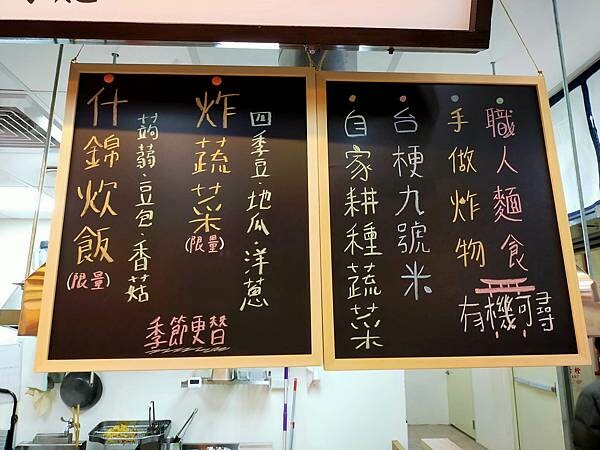 職人麵食
手做炸物
有機可尋
台梗九號米
自家耕種蔬菜
四季豆·地瓜·洋蔥
炸蔬菜(限量)
蒟蒻·豆包·香菇
什錦炊飯(限量)
季節更替